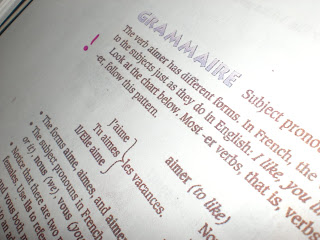 GRAMMAIRE
Subject prono
The verb aimer has different forms. In French, the
to the subjects just as they do in English: I like, you li
Look at the chart below. Most -er verbs, that is, verbs
-er, follow this pattern.
!
aimer (to like)
J'aime
Tu aimes
Il/Elle aime
les vacances.
No
• The forms aime, aimes, and aiment
• The subject pronouns in French
or it), nous (we), vous (you
• Notice that there are two
Use
to refer